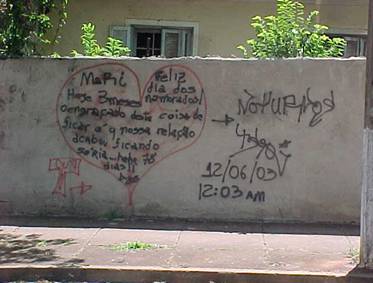 Mari
Feliz
dia dos
namorados!
Hoje 3 meses
o engraçado desta coisa de
ficar é q nossa relação
acabou ficando
séria... hoje 78
dias!!
12/06/03
12:03 AM